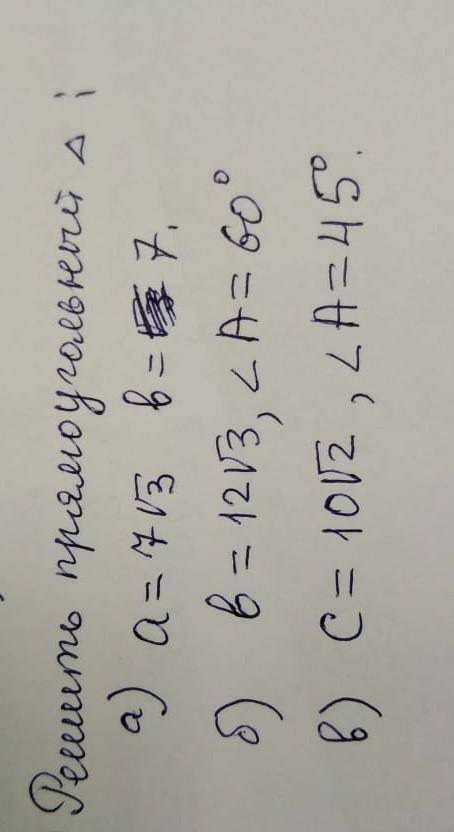 Решить прямоугольный Δ :
а) a = 7√3 в = 7.
б) в = 12√3, < A = 60°
в) C = 10√2, < A = 45°.